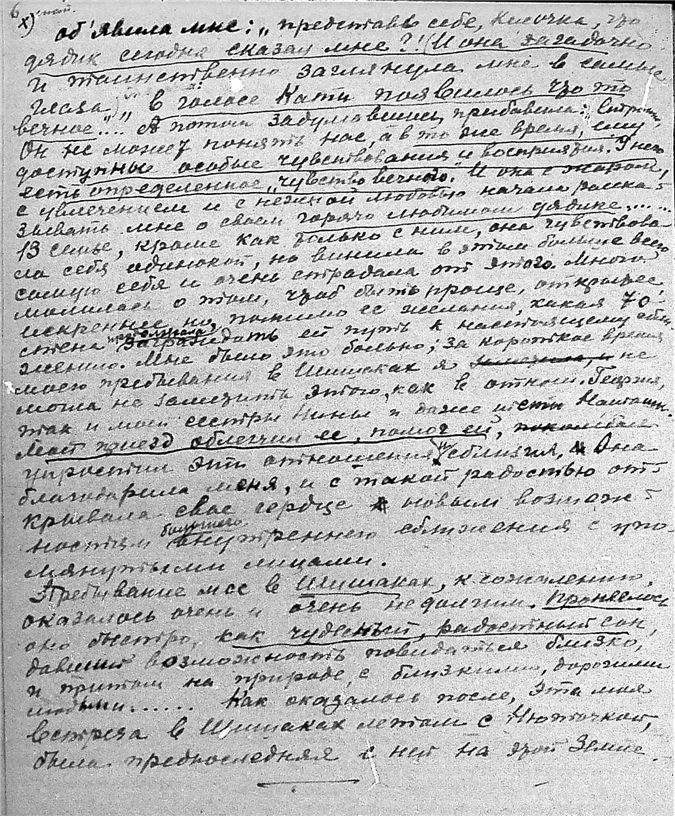 об'явила мне: „представь себе, Кисочка, что
дядик сегодня сказал мне?! (И она загадочно
и таинственно заглянула мне в самые
глаза) „в голосе Кати появилось что то
вечное"... А потом задумавшись, прибавила:
Он не может понять нас, а в то же время, ему
доступны особые чувствования и восприятия. У него
есть определенное „чувство вечного". И она с жаром,
с увлечением и с нежной любовью начала расска-
зывать мне о своем горячо любимом дядике......
В семье, кроме как только с ним, она чувствова
ла себя одинокой, но винила в этом больше всего
самую себя и очень страдала от этого. Много
молилась о том, чтоб быть проще, открытее,
искреннее, но, помимо ее желания, какая то
стена преграждать ей путь к настоящему сбли
жению. Мне было это больно; за короткое время
моего пребывания в Шишаках я не
могла не заметить этого, как в отнош. Георгия,
так и моей сестры Нины и даже
Мой приезд облегчил ее, помог ей,
упростил эти отношения, сблизил, Она
благодарила меня, и с такой радостью от-
крывала свое сердце новым возмож-
ностям большего внутреннего сближения с упо-
мянутыми лицами.
Пребывание мое в Шишаках, к сожалению,
оказалось очень и очень недолгим. Пронеслось
оно быстро, как чудесный, радостный сон,
давший возможность повидаться близко,
и притом на природе, с близкими, дорогими
людьми...... Как оказалось после, эта моя
встреча в Шишаках летом с Нюточкой,
была предпоследняя с ней на этой Земле.